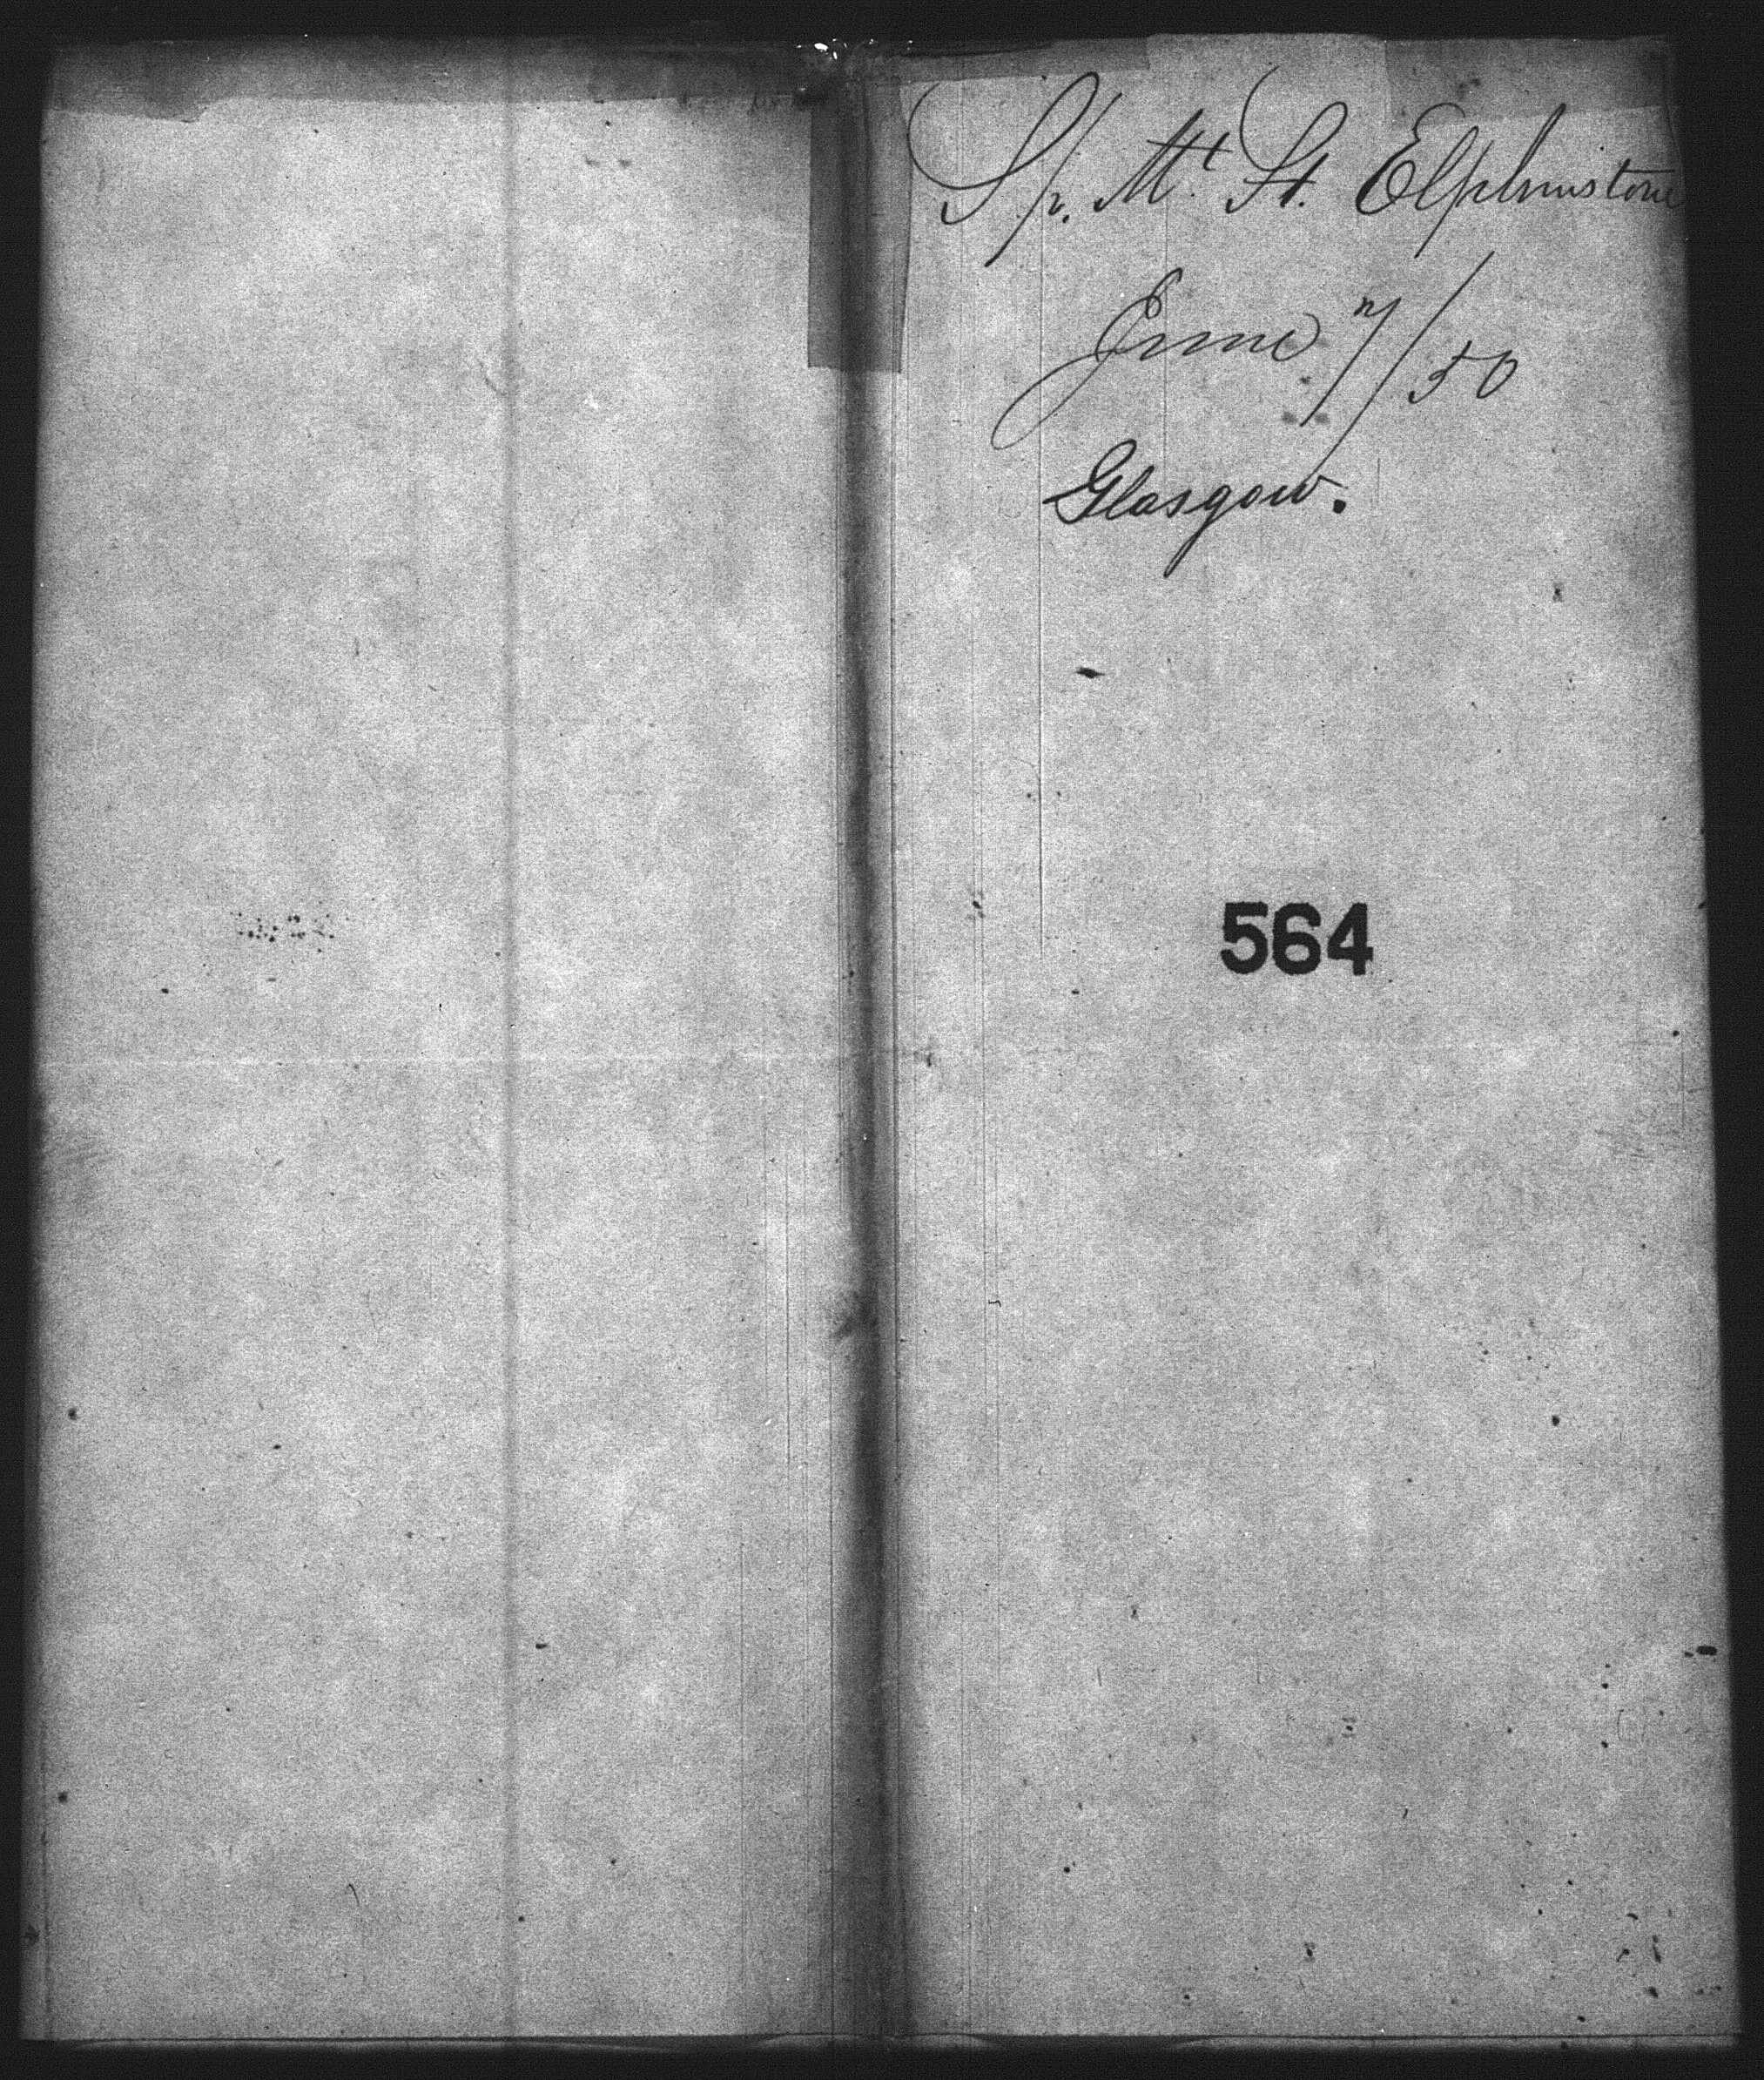 Sp. Mt. St. Elphinstone
June 7/50
Glasgow.
564